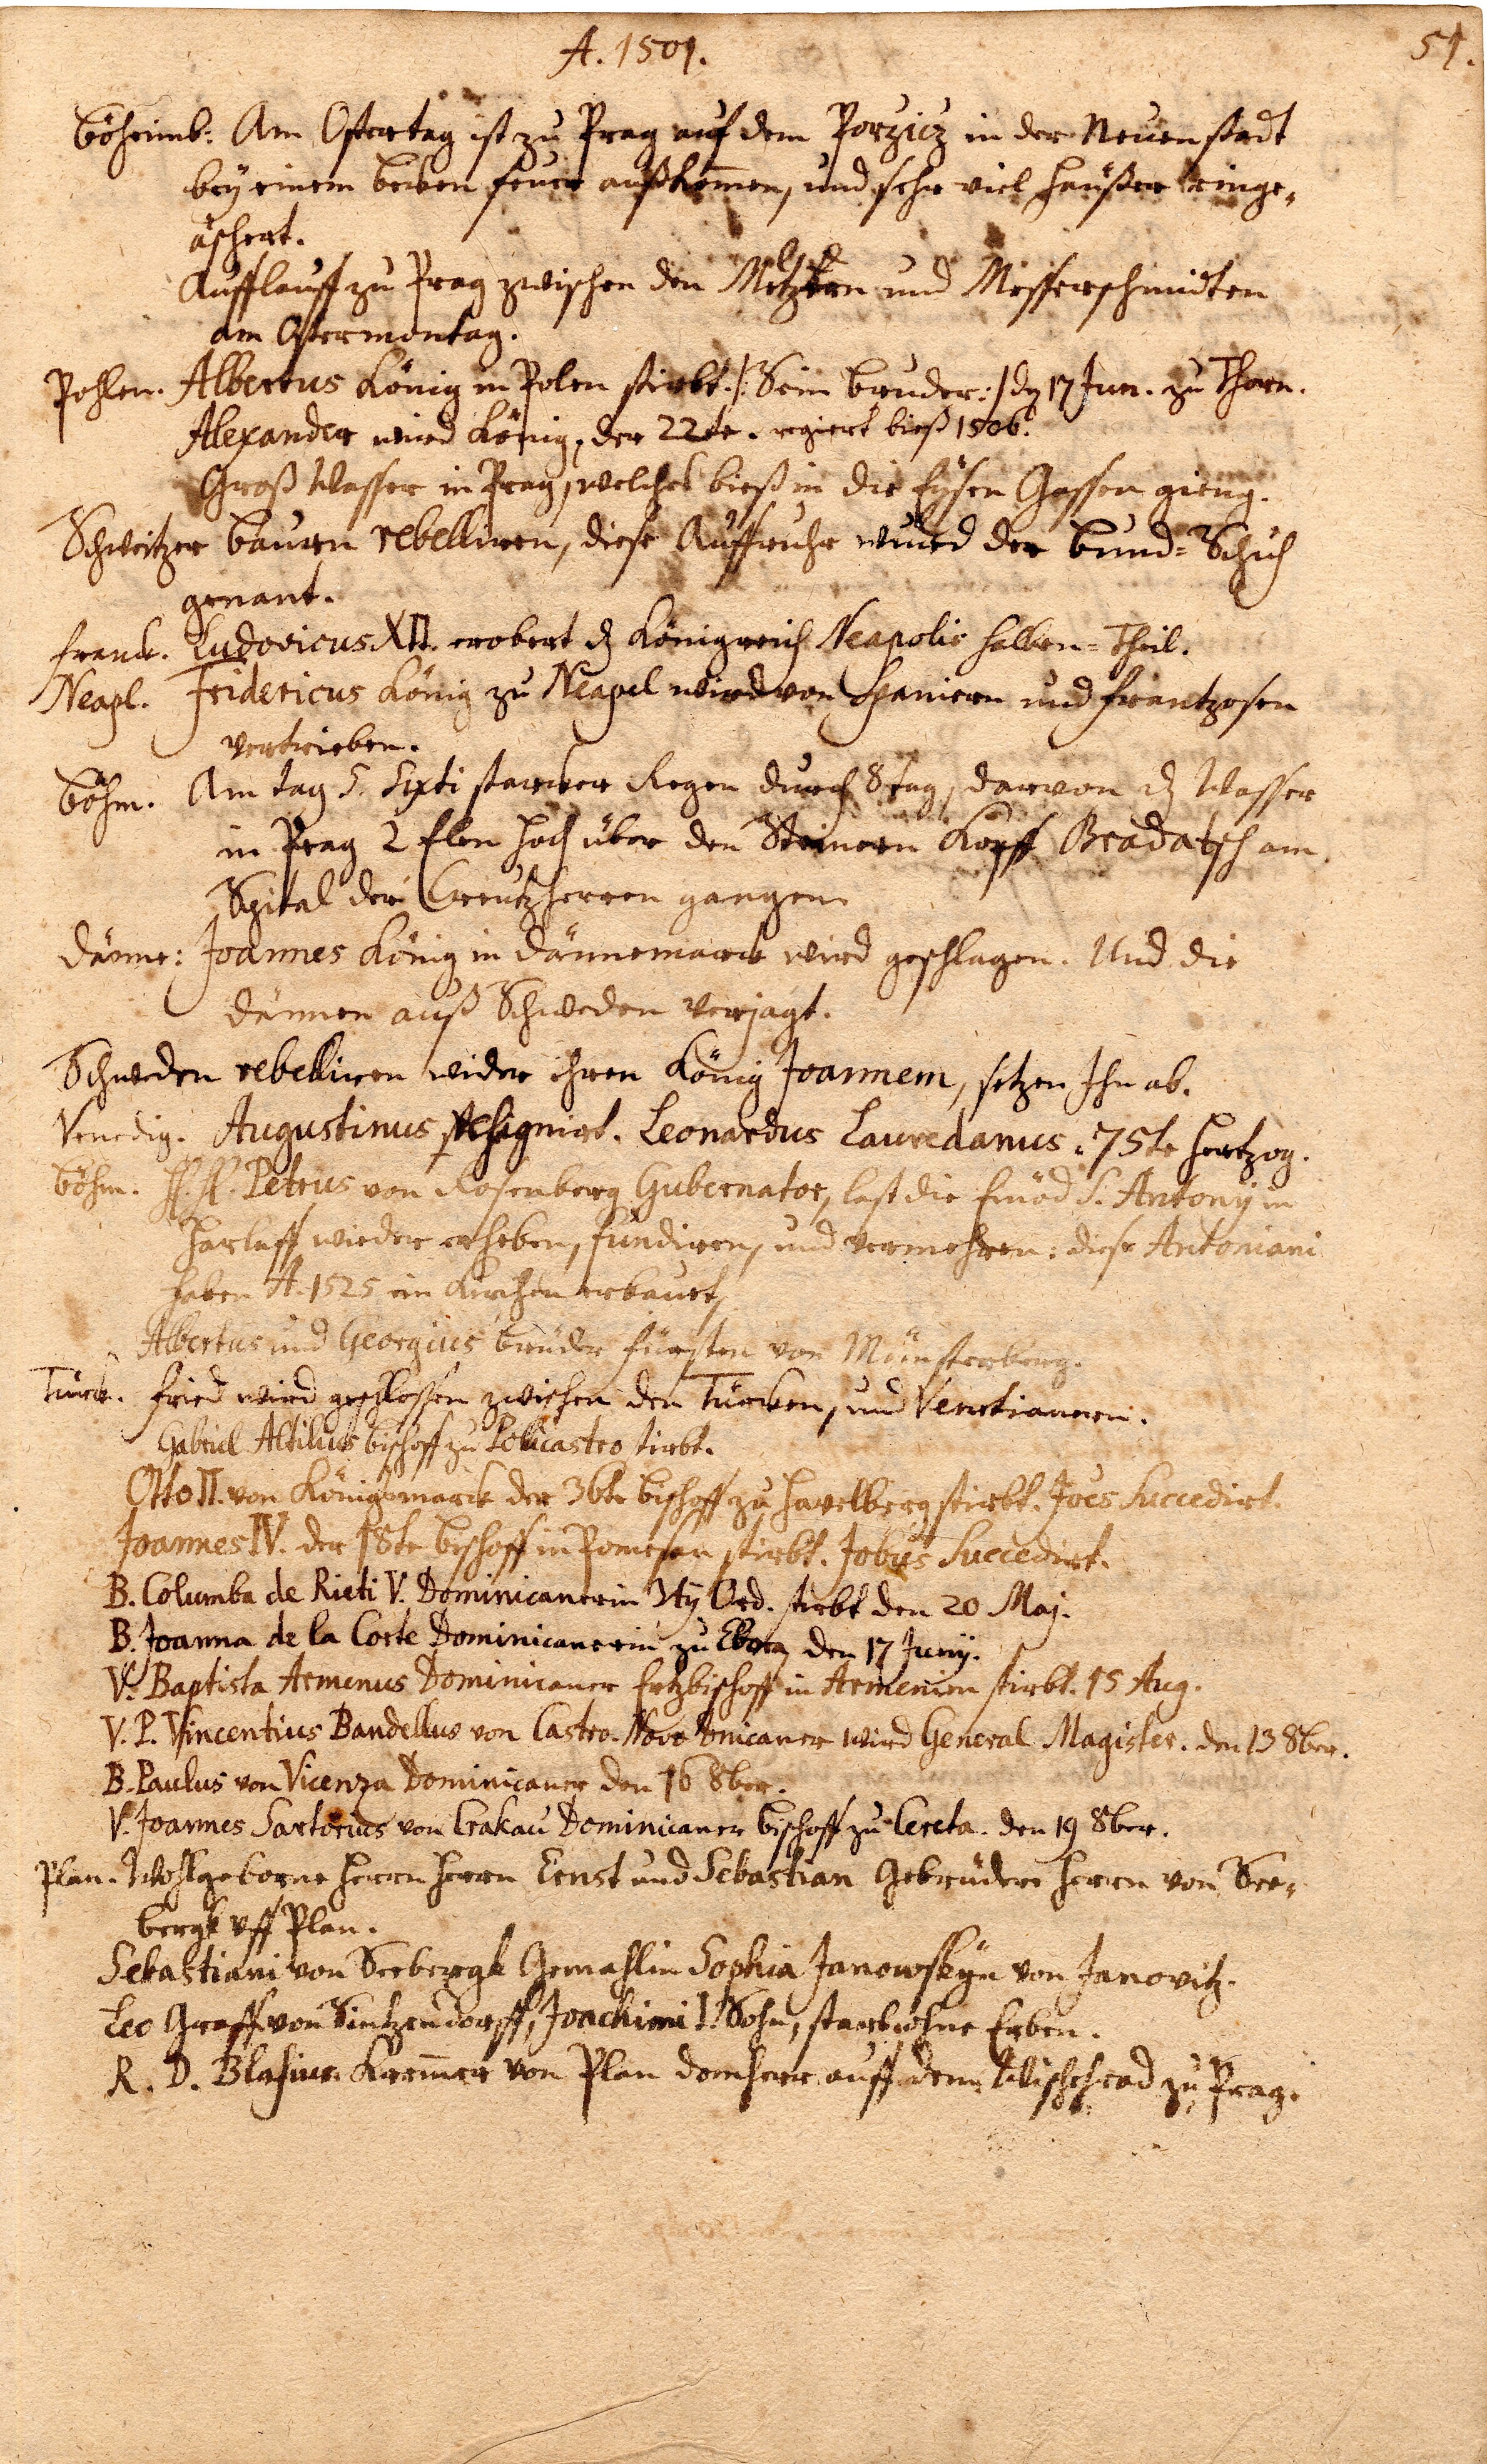 A. 1501.
51.
Böheimb: Am Ostertag ist zu Prag auf dem Porzicz in der Neuenstadt
bey einem becken feuer außkom̄en, und sehr viel Heußer einge-
äschert.
Aufflauff zu Prag zwischen den und Messerschmidten
am Ostermontag.
Pohlen. Albertus König in Polen stirbt. /: Sein bruder :/ dȝ 17 Jun. zu Thorn.
Alexander wird König, der 22te. regiert bieß 1506.
Groß Wasser in Prag, welches bieß in die Eysen Gassen gieng.
Schweitzer bauren rebelliren, diese Auffruhr wurd der bund-Schuch
genant.
Franck. Ludovicus XII. erobert dȝ Königreich Neapolis halben-Theil.
Neapl. Fridericus König zu Neapel wird von Spaniern und frantzosen
vertrieben.
Böhm. Am tag S. Sixti starcker Regen durch 8 tag, darvon dȝ Wasser
in Prag 2 Elen hoch über den Steinern Kopff Bradatsch am
Spital der Creutzherren gangen.
Dänne: Joannes König in Dännemarck wird geschlagen. Und die
Dännen auß Schweden verjagt.
Schweden rebelliren wider ihren König Joannem, setzen Ihn ab.
Venedig. Augustinus resignirt. Leonardus Lauredanus. 75te Hertzog.
Böhm. H. H. Petrus von Rosenberg Gubernator, last die Einöd S. Antonÿ in
Harlaff wieder erheben, fundiren, und vermehren: diese Antoniani
haben A. 1525 ein Kirchen erbauet,
Albertus und Georgius brüder fürsten von Münsterberg.
Türck. Fried wird geschlossen zwischen den Türcken, und Venetianern.
Gabriel Altilius bischoff zu Policastro stirbt.
Otto II. von Königsmarck der 36te bischoff zu Havelberg stirbt. Joēs Succedirt.
Joannes IV. der 18te bischoff in Pomesan stirbt. Jobus Succedirt.
B. Columba de Rieti V. Dominicanerin 3tÿ Ord. stirbt den 20 Maj.
B. Joanna de la Corte Dominicanerin zu Ebora den 17 Junÿ.
V. Baptista Armenus Dominicaner Ertzbischoff in Armenien stirbt. 15 Aug.
V. P. Vincentius Bandellus von Castro-Novo wird General Magister. den 13 8ber.
B. Paulus von Vicenza Dominicaner den 16 8ber.
V. Joannes Sartorius von Crakau Dominicaner bischoff zu Cereta. den 19 8ber.
Plan. Wohlgeborne Herrn Herrn Ernst und Sebastian Gebrüdere Herrn von See-
bergk uff Plan.
Sebastiani von Seebergk Gemahlin Sophia Janowskÿn von Janovitz.
Leo Graff von Sintzendorff, Joachimi I. Sohn, starb ohne Erben.
R. D. Blasius Krem̄er von Plan Domherr auff dem Wischehrad zu Prag.